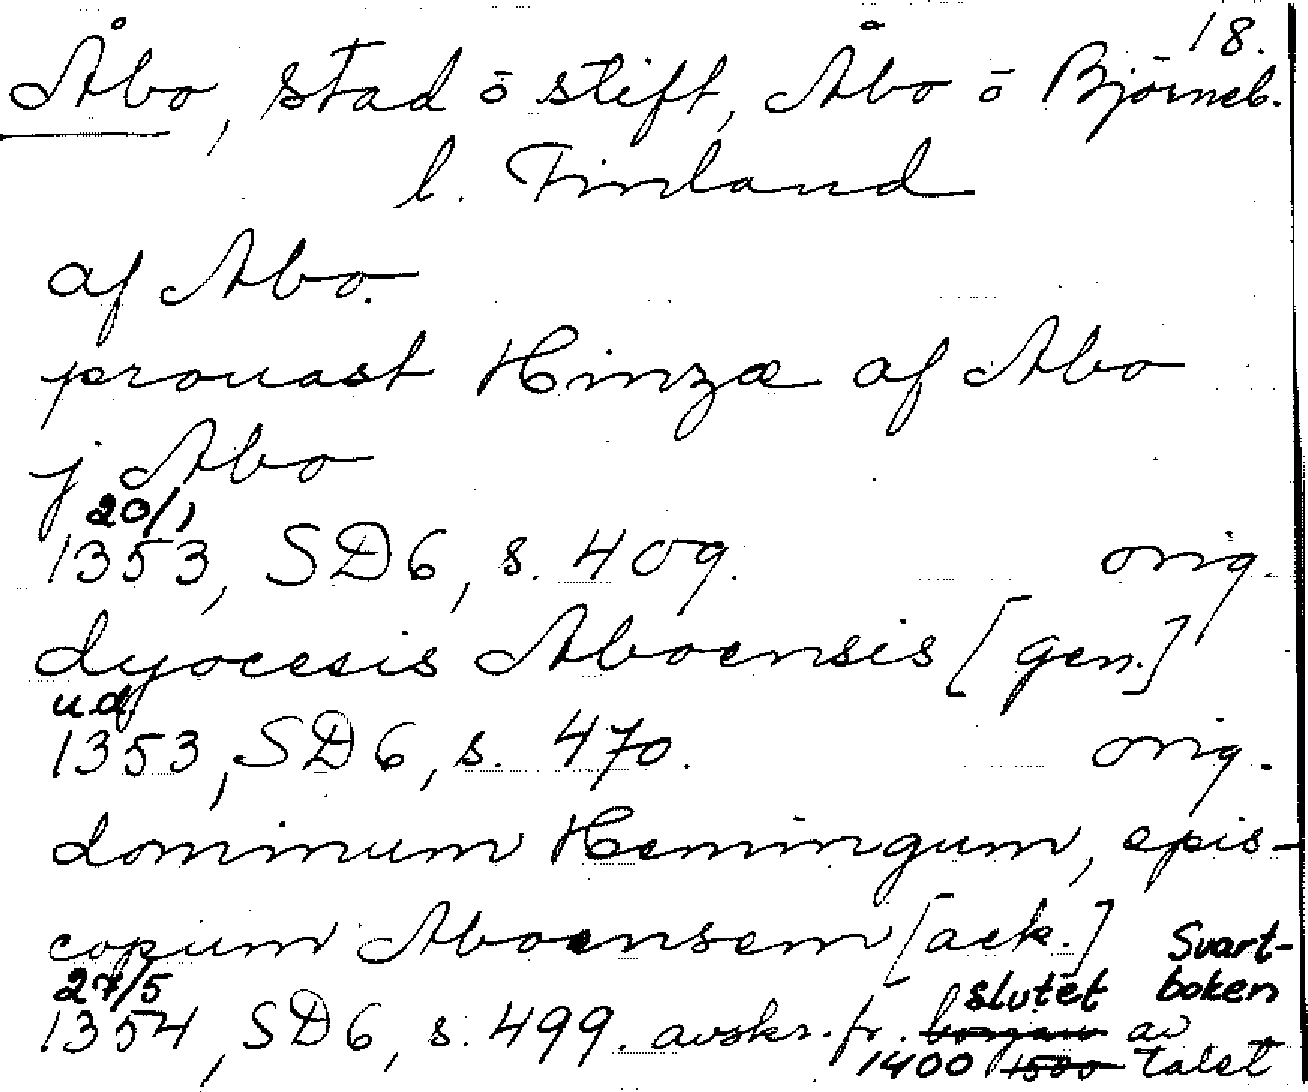 18.
Åbo, stad ō stift, Åbo ō Björneb.
l. Finland
af Abo.
prouast Hinzæ af Abo
j Abo
20/1
1353, SD6, s. 409. orig.
dyocesis Aboensis [gen.]
u.d.
1353, SD6, s. 470. orig.
dominum Hemingum, epis-
copum Aboensem [ack.] Svart-
27/5 slutet boken
1354, SD6, s. 499. avskr. fr. början av
1400 1500 talet